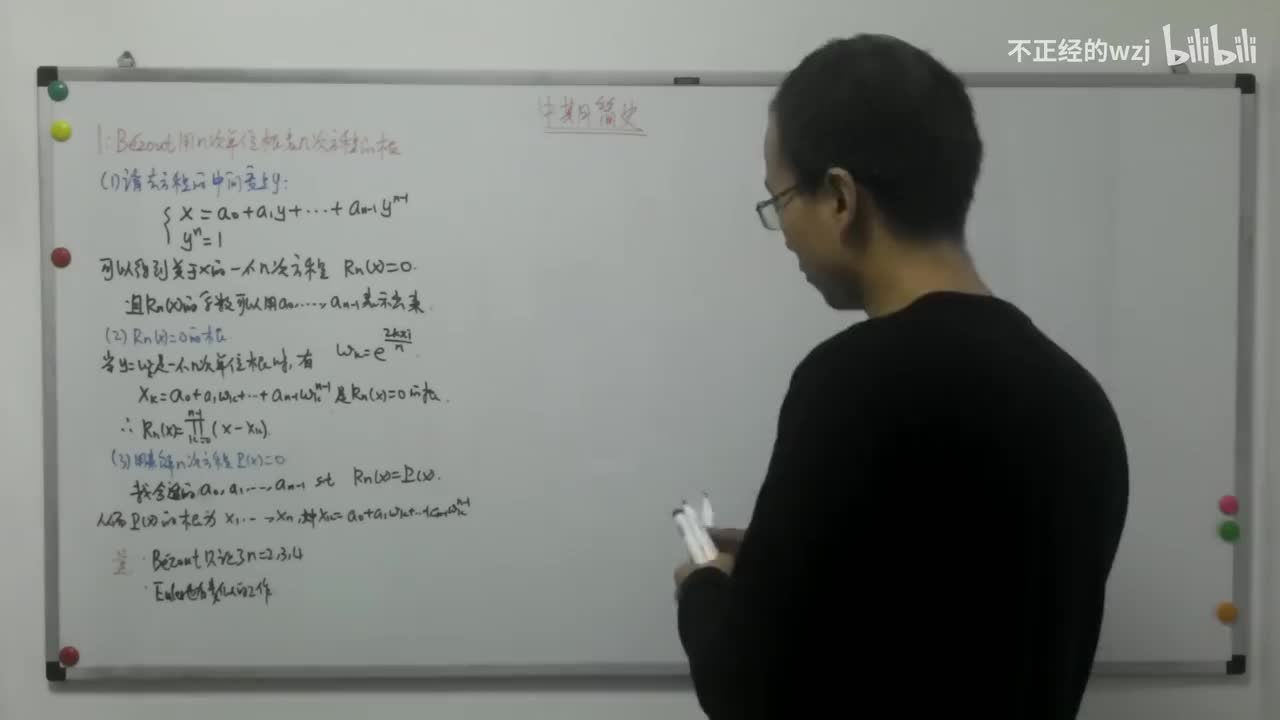 不正经的wzj bilibili
中期简史
1: Bézout用n次单位根表n次方程的根
(1)消去方程的中间变量y:
x=a₀+a₁y+⋯+aₙ₋₁yⁿ⁻¹
yⁿ=1
可以得到关于x的一个n次方程 Rₙ(x)=0.
且Rₙ(x)的系数可以用a₀,⋯,aₙ₋₁表示出来.
(2) Rₙ(x)=0的根
当y=ωₖ是一个n次单位根时,有 ωₖ=e^{2kπi/n}.
xₖ=a₀+a₁ωₖ+⋯+aₙ₋₁ωₖⁿ⁻¹是Rₙ(x)=0的根.
∴ Rₙ(x)=∏_{k=0}^{n-1}(x-xₖ).
(3) 解n次方程P(x)=0
找合适的a₀,a₁,⋯,aₙ₋₁ st Rₙ(x)=P(x).
从而P(x)的根为x₁,⋯,xₙ,其中xₖ=a₀+a₁ωₖ+⋯+aₙ₋₁ωₖⁿ⁻¹
注 · Bézout只论了n=2,3,4
· Euler也有类似的工作